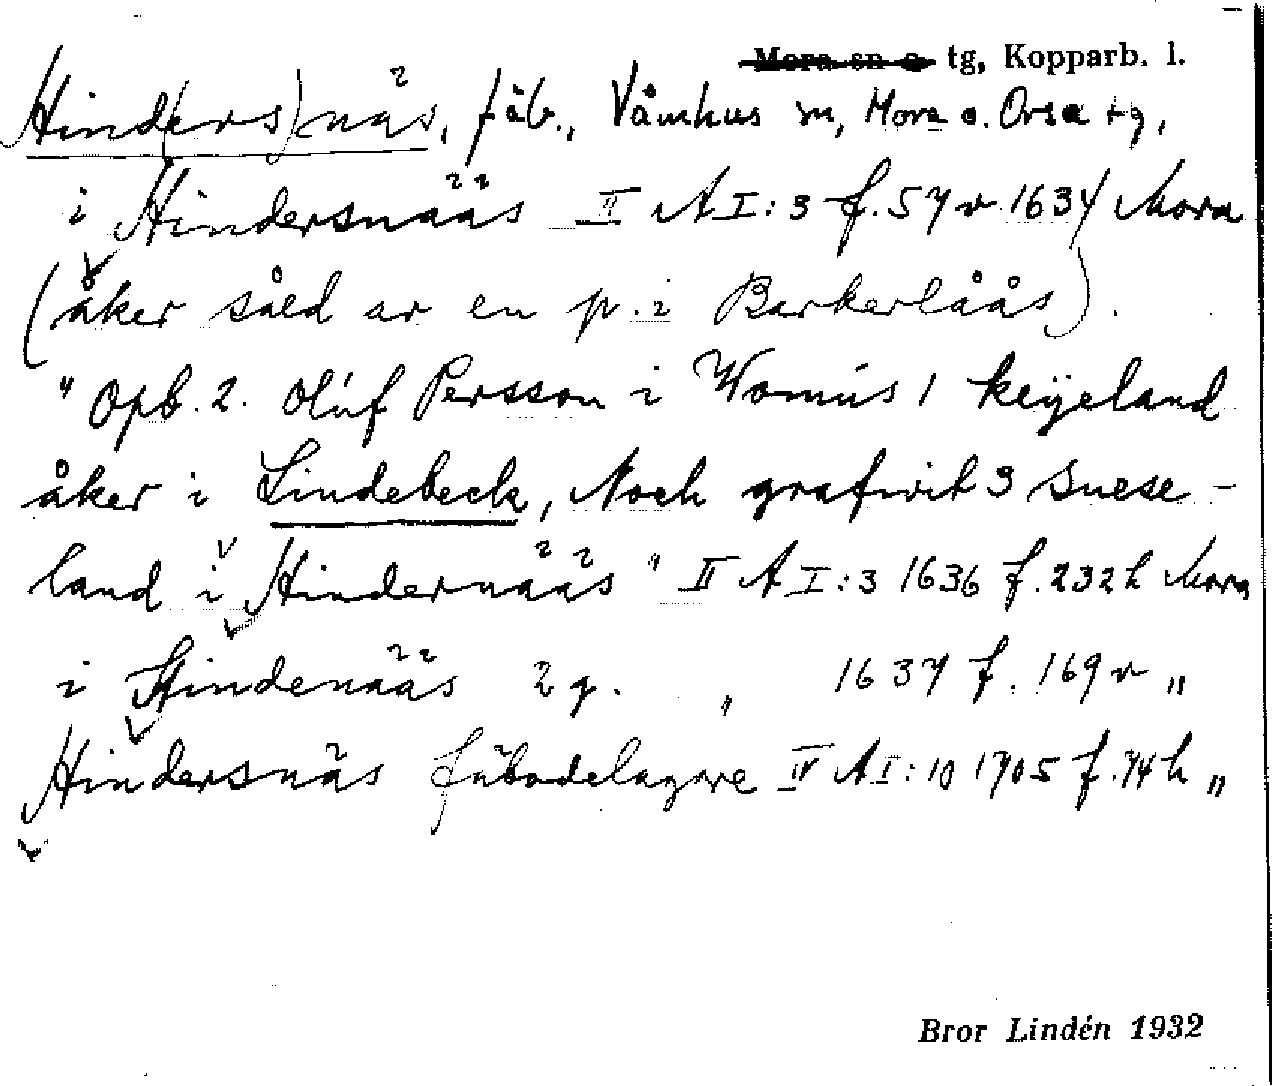 Mora sn o tg, Kopparb. l.
Hind(ers)näs, fäb., Våmhus sn, Mora o. Orsa tg,
i Hindersnääs II A I:3 f. 57 v 1634 Mora
(åker såld av en p. i Barkerlåås).
"Opb. 2. Oluf Persson i Womus 1 keijeland
åker i Lindebeck, Noch grafwit 3 suese-
land i Hindernääs" II A I:3 1636 f. 232 h Mora
i Hindenääs 2 g. " 1637 f. 169 v "
Hindersnäs fäbodelagare IV A I:10 1705 f. 74 h "
Bror Lindén 1932